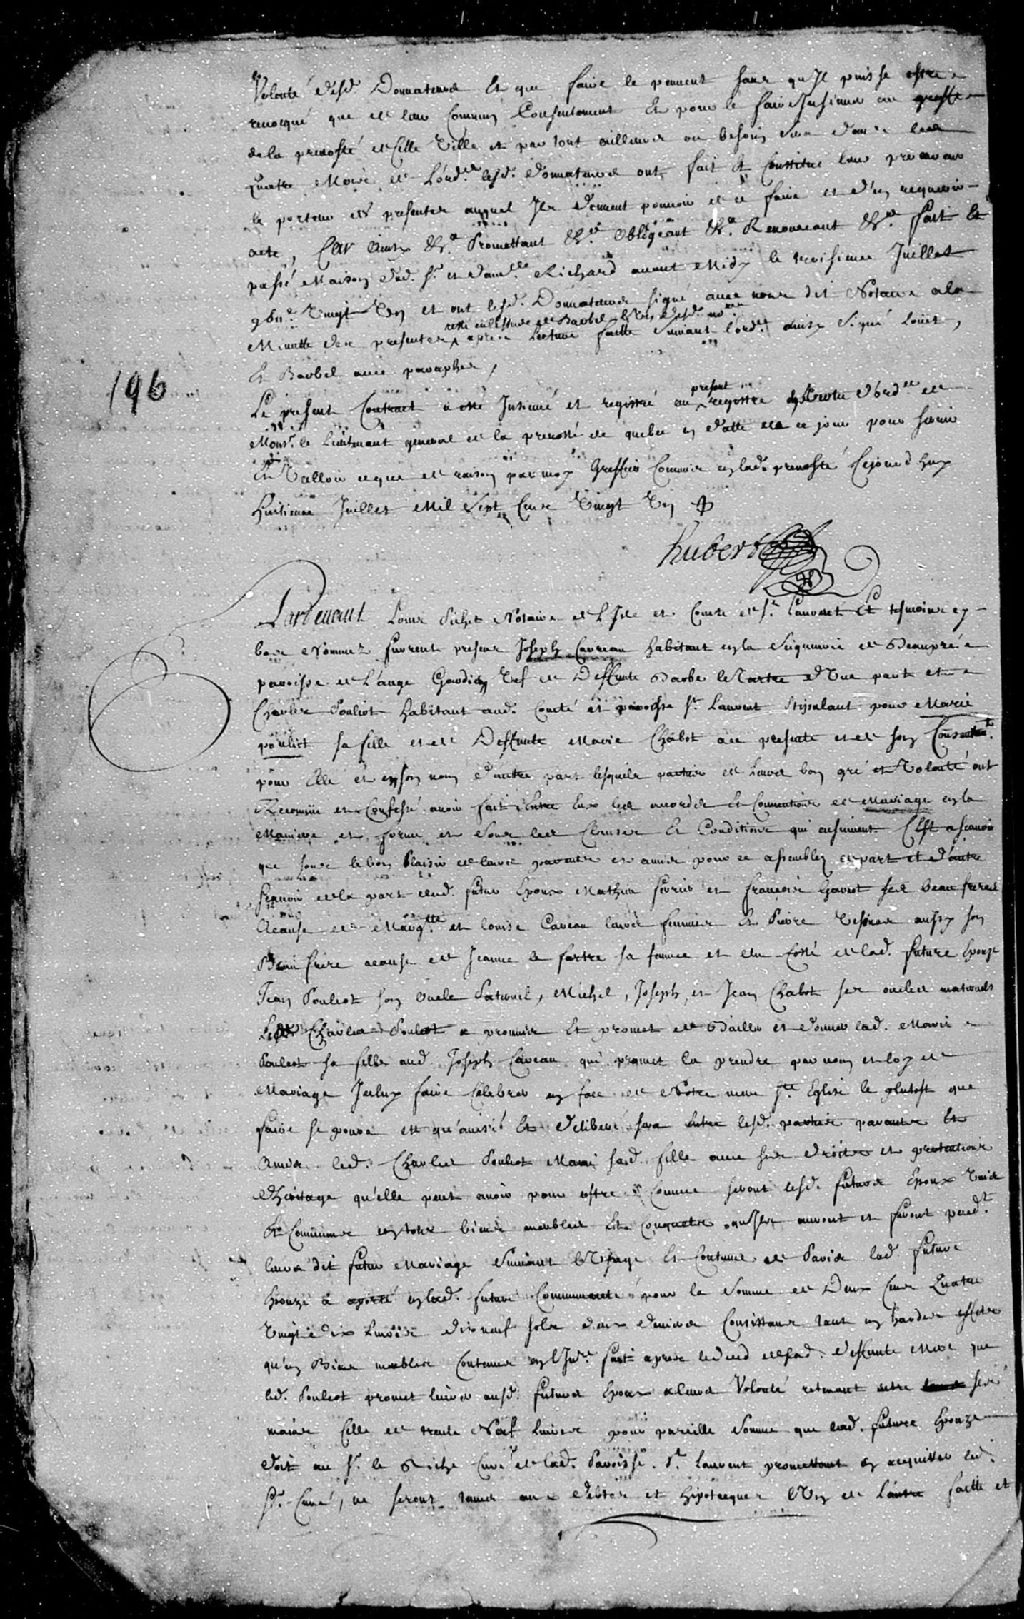 Volonté desd. Donnateurs Et que faire le peuvent sans qu'Il puisse estre
revocqué que de leur Commun Consentement Et pour le faire Insinuer au greffe
de la prevosté de cette Ville et par tout ailleurs ou besoin sera dans les
quatre Mois de l'ord.ce lesd. donnateurs ont fait et Constitué leur procureur
le porteur des presentes auquel Ils donnent pouvoir de ce faire et d'en requerir
acte, Car Ainsy &c. Promettant &c. obligeant &c. Renonceant &c. fait Et
passé Maison dud. Sr. et dam.lle Richard avant Midy le troisieme Juillet
gbii.c Vingt Un et ont lesd. Donnateurs signé avec nous dit Notaire a la
Minutte des presentes apres Lecture faitte suivant l'ord.ce ainsy Signé Loüet,
Et Barbel avec paraphes,
196
Le present Contract a esté Insinué et registré au present registre de l'ord.re de
Mons.r le Lieutenant general de la prevosté de quebec en datte de ce jour pour servir
Et Valloir ce que de raison par moy Greffier Commis en lad. prevosté Cejourd'huy
Huitieme Juillet Mil Sept Cens Vingt Un
hubert
Pardevant Louis Pichet Notaire de l'Isle et Comté de St. Laurent Et tesmoins cy
bas Nommez furent presens Joseph Caureau habitant en la Seigneurie de Beaupré
paroisse de L'ange Gardien Vef de Deffunte Barbe le Tartre d'Une part et
Charles Pouliot habitant aud. Comté et paroisse St. Laurent Stipulant pour Marie
pouliot sa fille et de Deffunte Marie Chabot a ce presente et de son Consentem.t
pour Elle et en son nom d'autre part lesquels parties de Leurs bon gré et Volonté ont
Reconnu et Confessé avoir fait Entre Eux les accords Et Conventions de Mariage en la
Maniere et forme et sous les Clauses Et Conditions qui ensuivent C'Est a scavoir
que sous le bon Plaisir de leurs parents et amis pour ce assemblez de part et d'autre
scavoir de la part dud. futur Epoux Mathieu et françois Gariot ses beau freres
acause de Marg.tte et Louise Caveau leurs femmes Et Pierre aussy son
Beau frere acause de Jeanne le fartre sa femme et du Costé de lad. future Epouze
Jean Pouliot son Oncle Paternel, Michel, Joseph, et Jean Chabot ses oncles maternels
Led. Charles Pouliot a promis Et promet de Bailler et donner lad. Marie
Pouliot sa fille aud. Joseph Caveau qui promet la prendre par nom et loy de
Mariage Iceluy faire Celebrer en face de Notre mere S.te Eglise le plutost que
faire se poura et qu'avisé Et deliberé sera Entre lesd. parties parants Et
amis. led. Charles Pouliot Marie sad. fille avec ses droits et pretentions
d'heritage qu'elle peut avoir pour estre Comme seront lesd. futurs Epoux Unis
Et Communs en tous biens meubles Et Conquets qu'Ils auront et feront pend.t
leurs dit futur Mariage Suivant l'Usage Et Coutume de Paris lad. future
Epouze a aporté en lad. future Communauté pour la Somme de Deux Cens Quatre
Vingt dix Livres dixneuf sols deux deniers Consistant tant en hardes effets
qu'en Biens meubles Contenus en l'Inv.re fait apres le deced de sad. deffunte Mere que
led. Pouliot promet livrer ausd. futurs Epoux a leurs Volonté retenant
moins Celle de trente Neuf Livres pour pareille Somme que lad. future Epouze
doit au Sr. le Riche Curé de lad. Paroisse St. Laurent promettant en acquitter led.
Sr. Curé, ne seront tenus aux debtes et hipotecques l'Un de l'autre faitte et